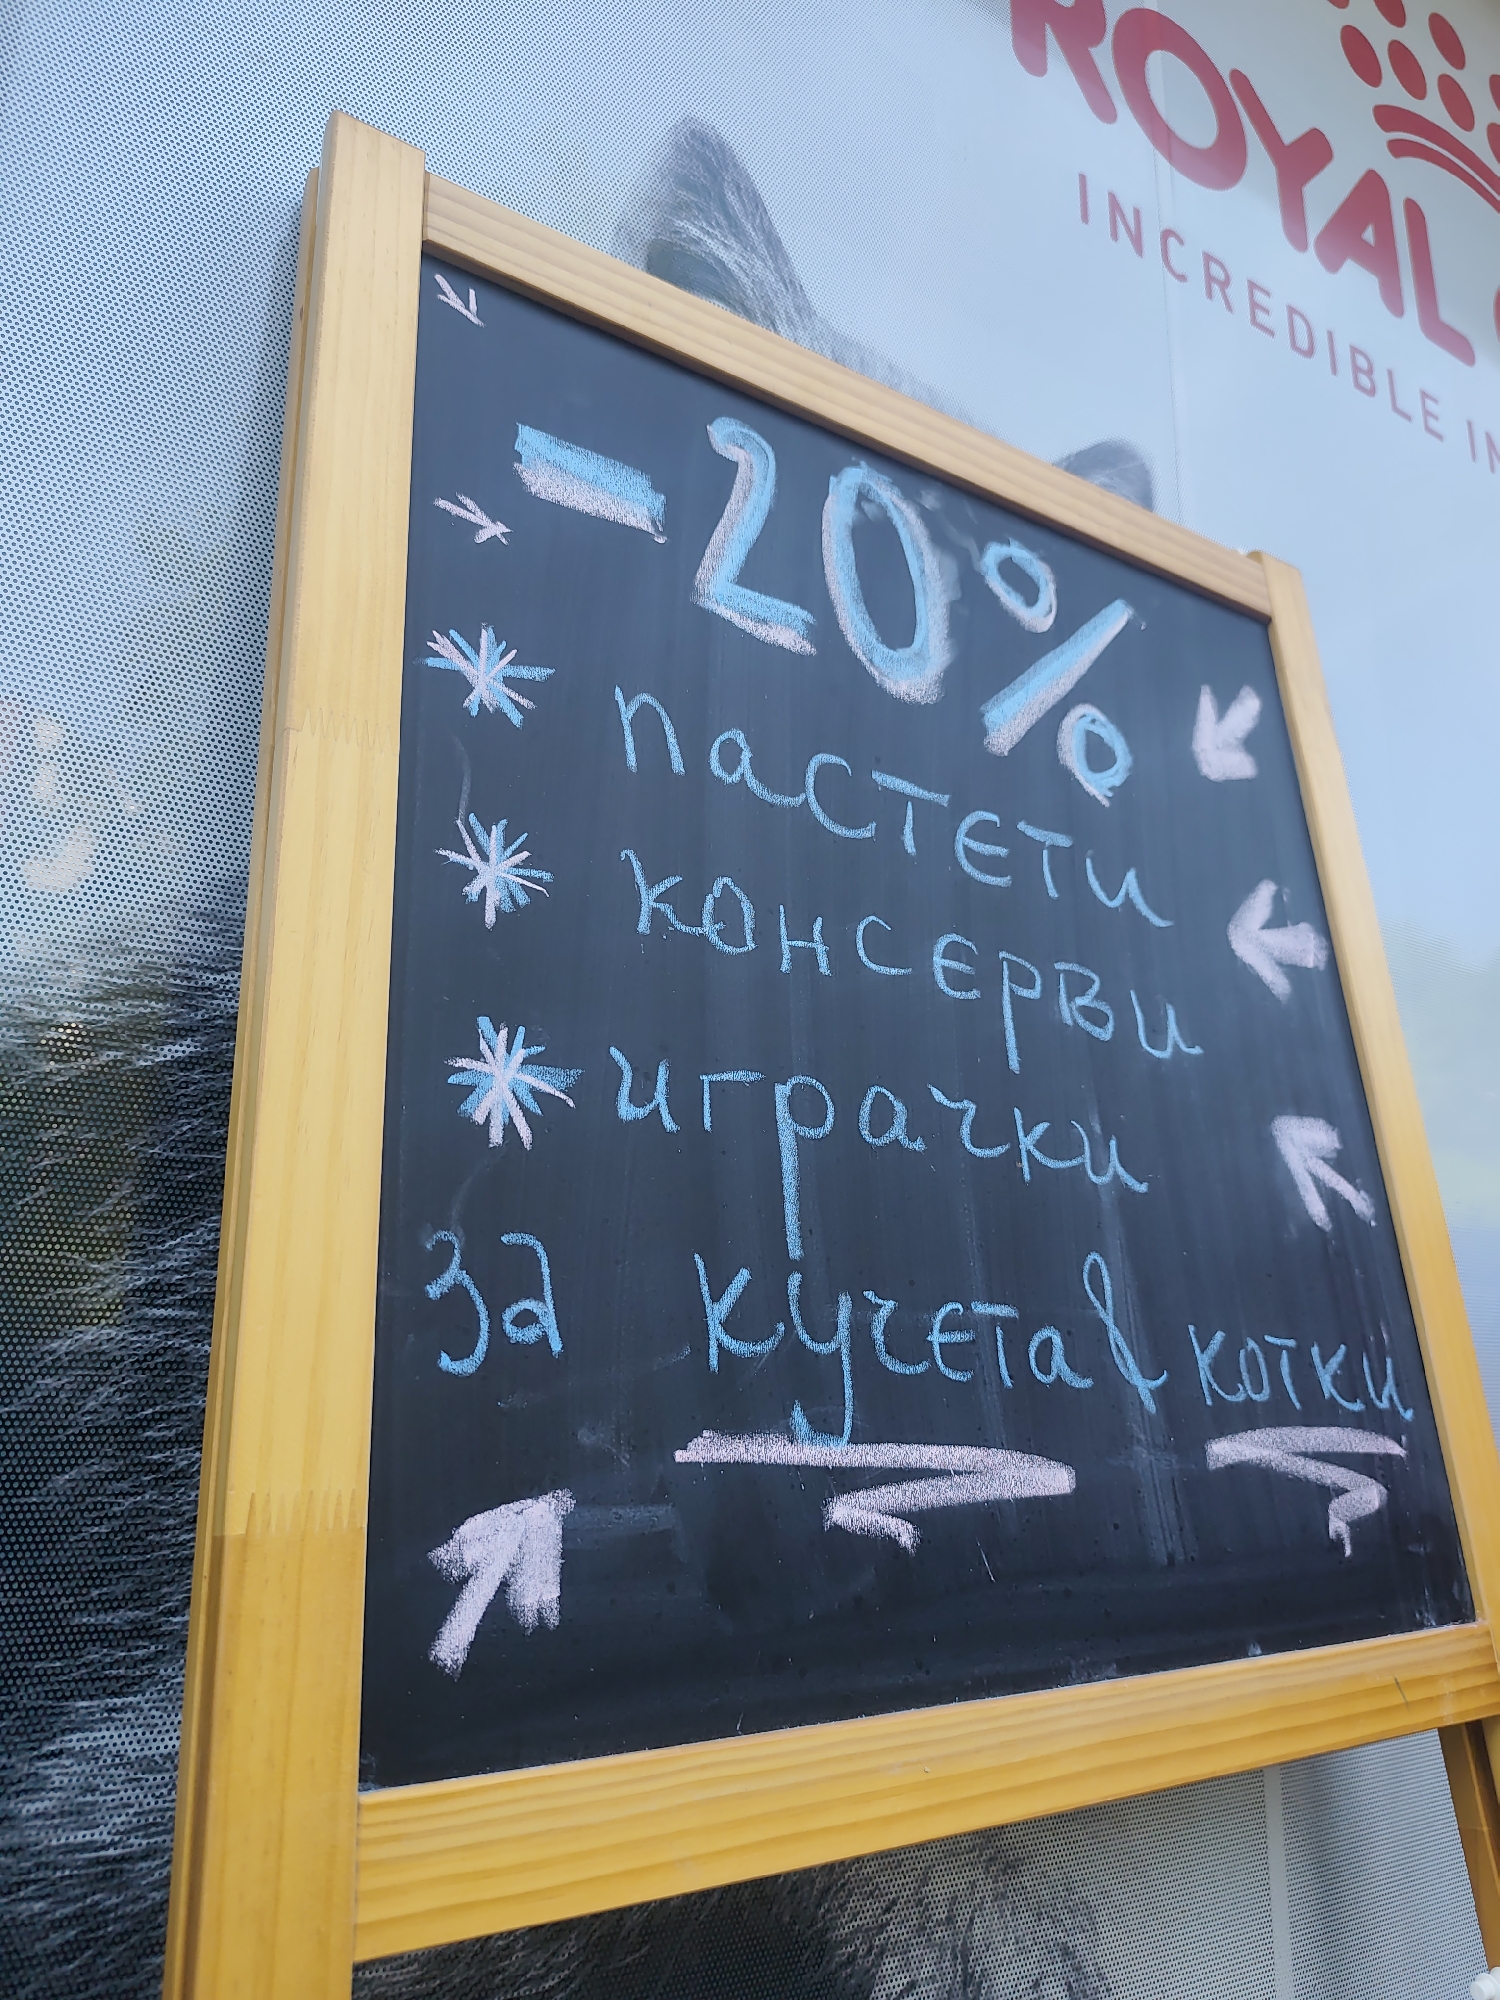 ROYAL
INCREDIBLE
-20%
* пастети
* консерви
* играчки
за кучета & котки